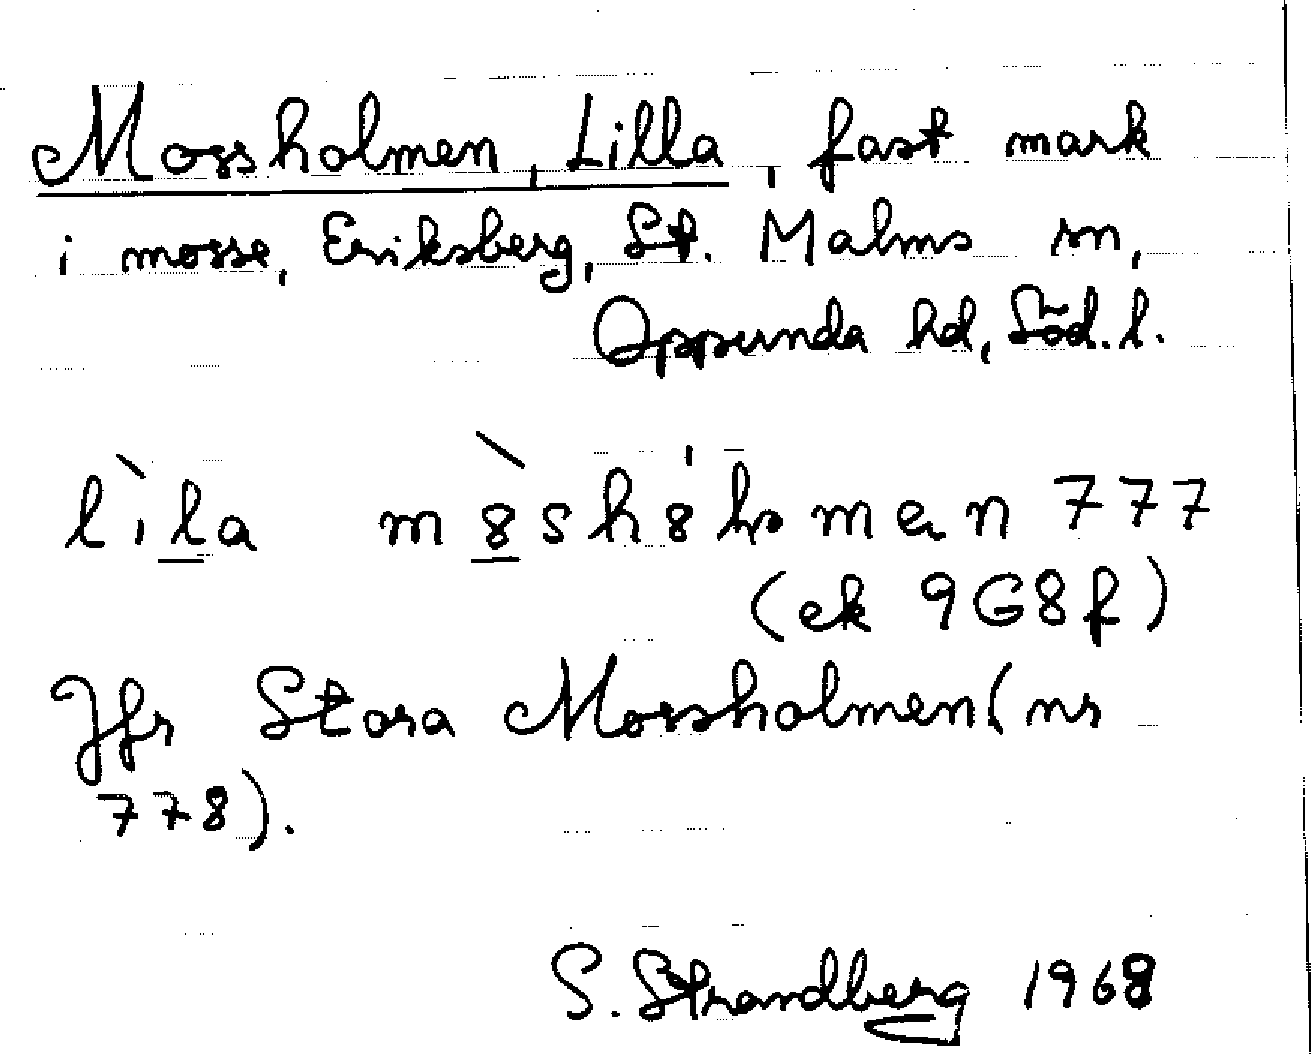 Mossholmen, Lilla, fast mark
i mosse, Eriksberg, St. Malms sn,
Oppunda hd, Söd. l.
lìla mèshólmen 777
(ek 9G8f)
Jfr Stora Mossholmen (nr
778).
S. Strandberg 1968